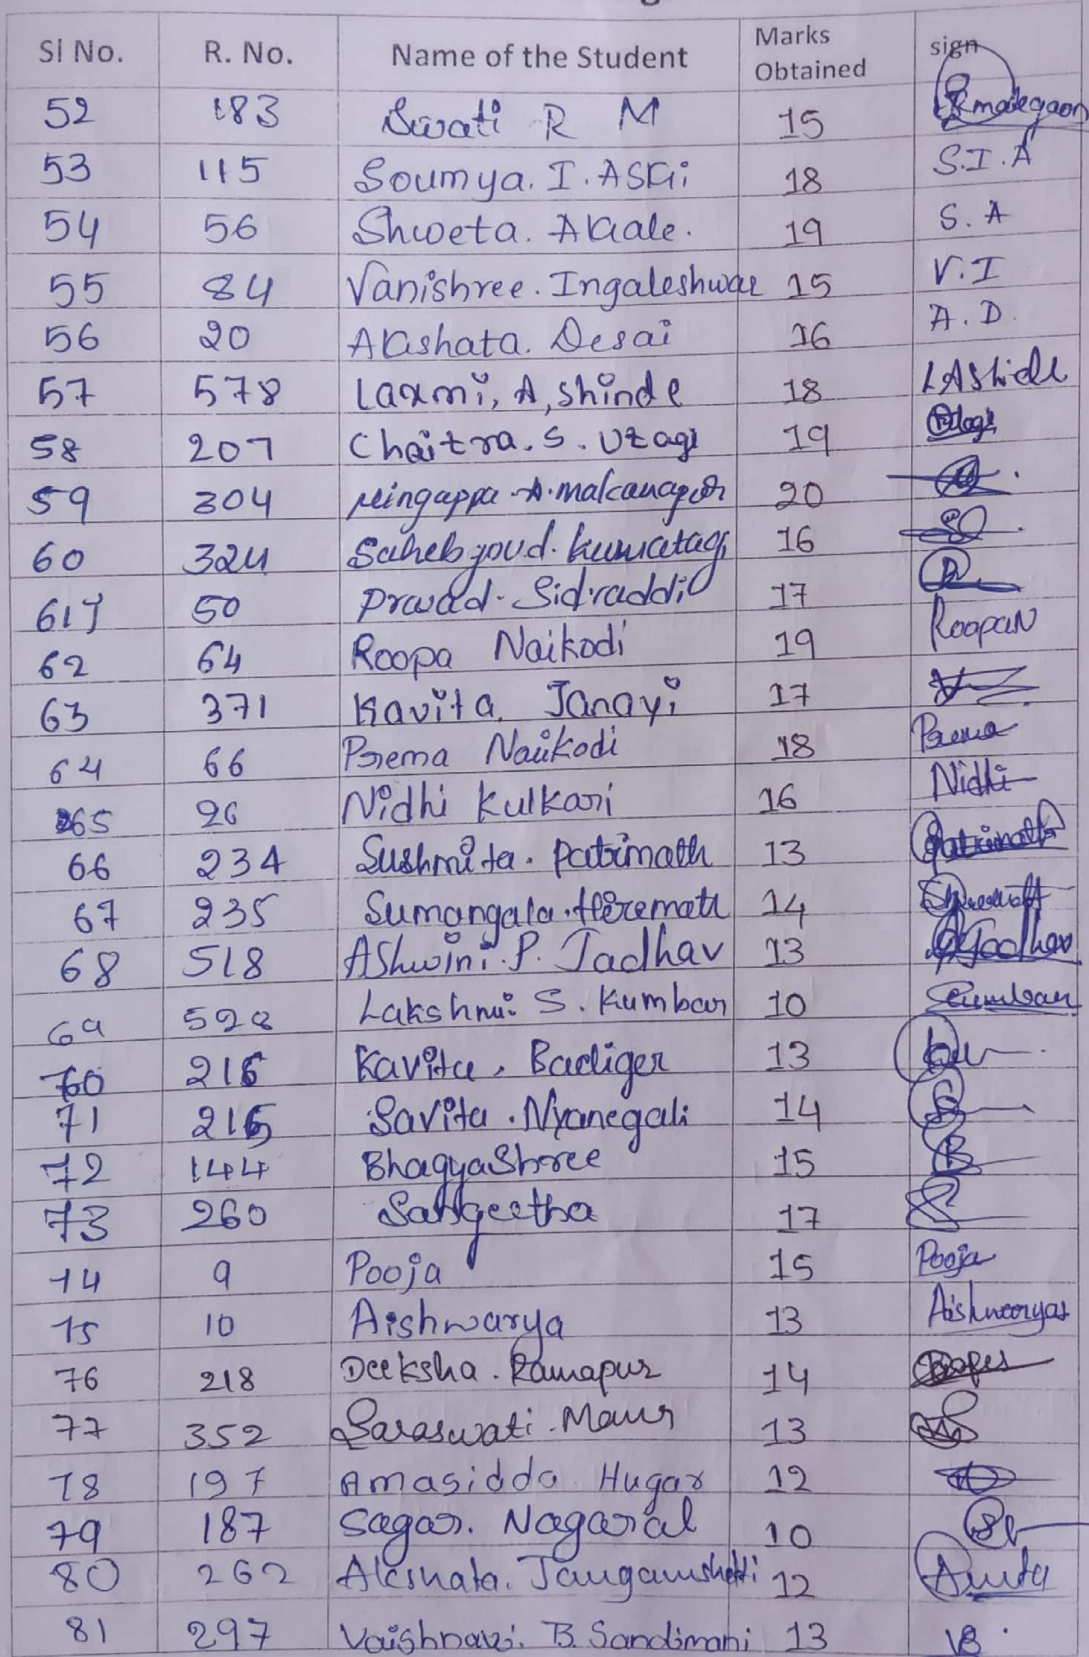 Sl No. R. No. Name of the Student Marks Obtained sign
52 183 Swati R M 15
53 115 Soumya. I. ASKi 18 S.I.A
54 56 Shweta. Akale. 19 S.A
55 84 Vanishree. Ingaleshwar 15 V.I
56 20 Akshata. Desai 16 A.D.
57 578 Laxmi, A, shinde 18
58 207 Chaitra. S. Utagi 19
59 304 A. 20
60 324 Sahebgoud. 16
61 50 Sidraddi 17
62 64 Roopa Naikodi 19 RoopaN
63 371 Kavita. Janayi 17
64 66 Prema Naikodi 18 Prema
65 26 Nidhi Kulkarni 16 Nidhi
66 234 Sushmita. Patrimath 13 Patrimath
67 235 Sumangala. Hiremath 14
68 518 AShwini. P. Jadhav 13 Jadhav
69 Lakshmi S. Kumbar 10 Kumbar
70 216 Kavita. Badiger 13
71 Savita. Nyanegali 14
72 144 BhagyaShree 15 B
73 260 Sangeetha 17
74 9 Pooja 15 Pooja
75 10 Aishwarya 13 Aishwarya
76 218 Deeksha. Ramapur 14
77 352 Saraswati. 13
78 197 Amasidda Hugar 12
79 187 Sagar. Nagaral 10
80 262 Akshata. Jangamshetti 12
81 297 Vaishnavi. B. Sandimani 13 VB